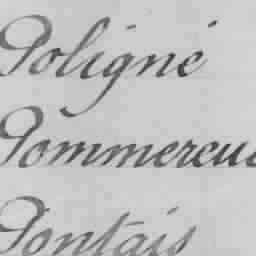 Poligné
Pommereuc
Pontais